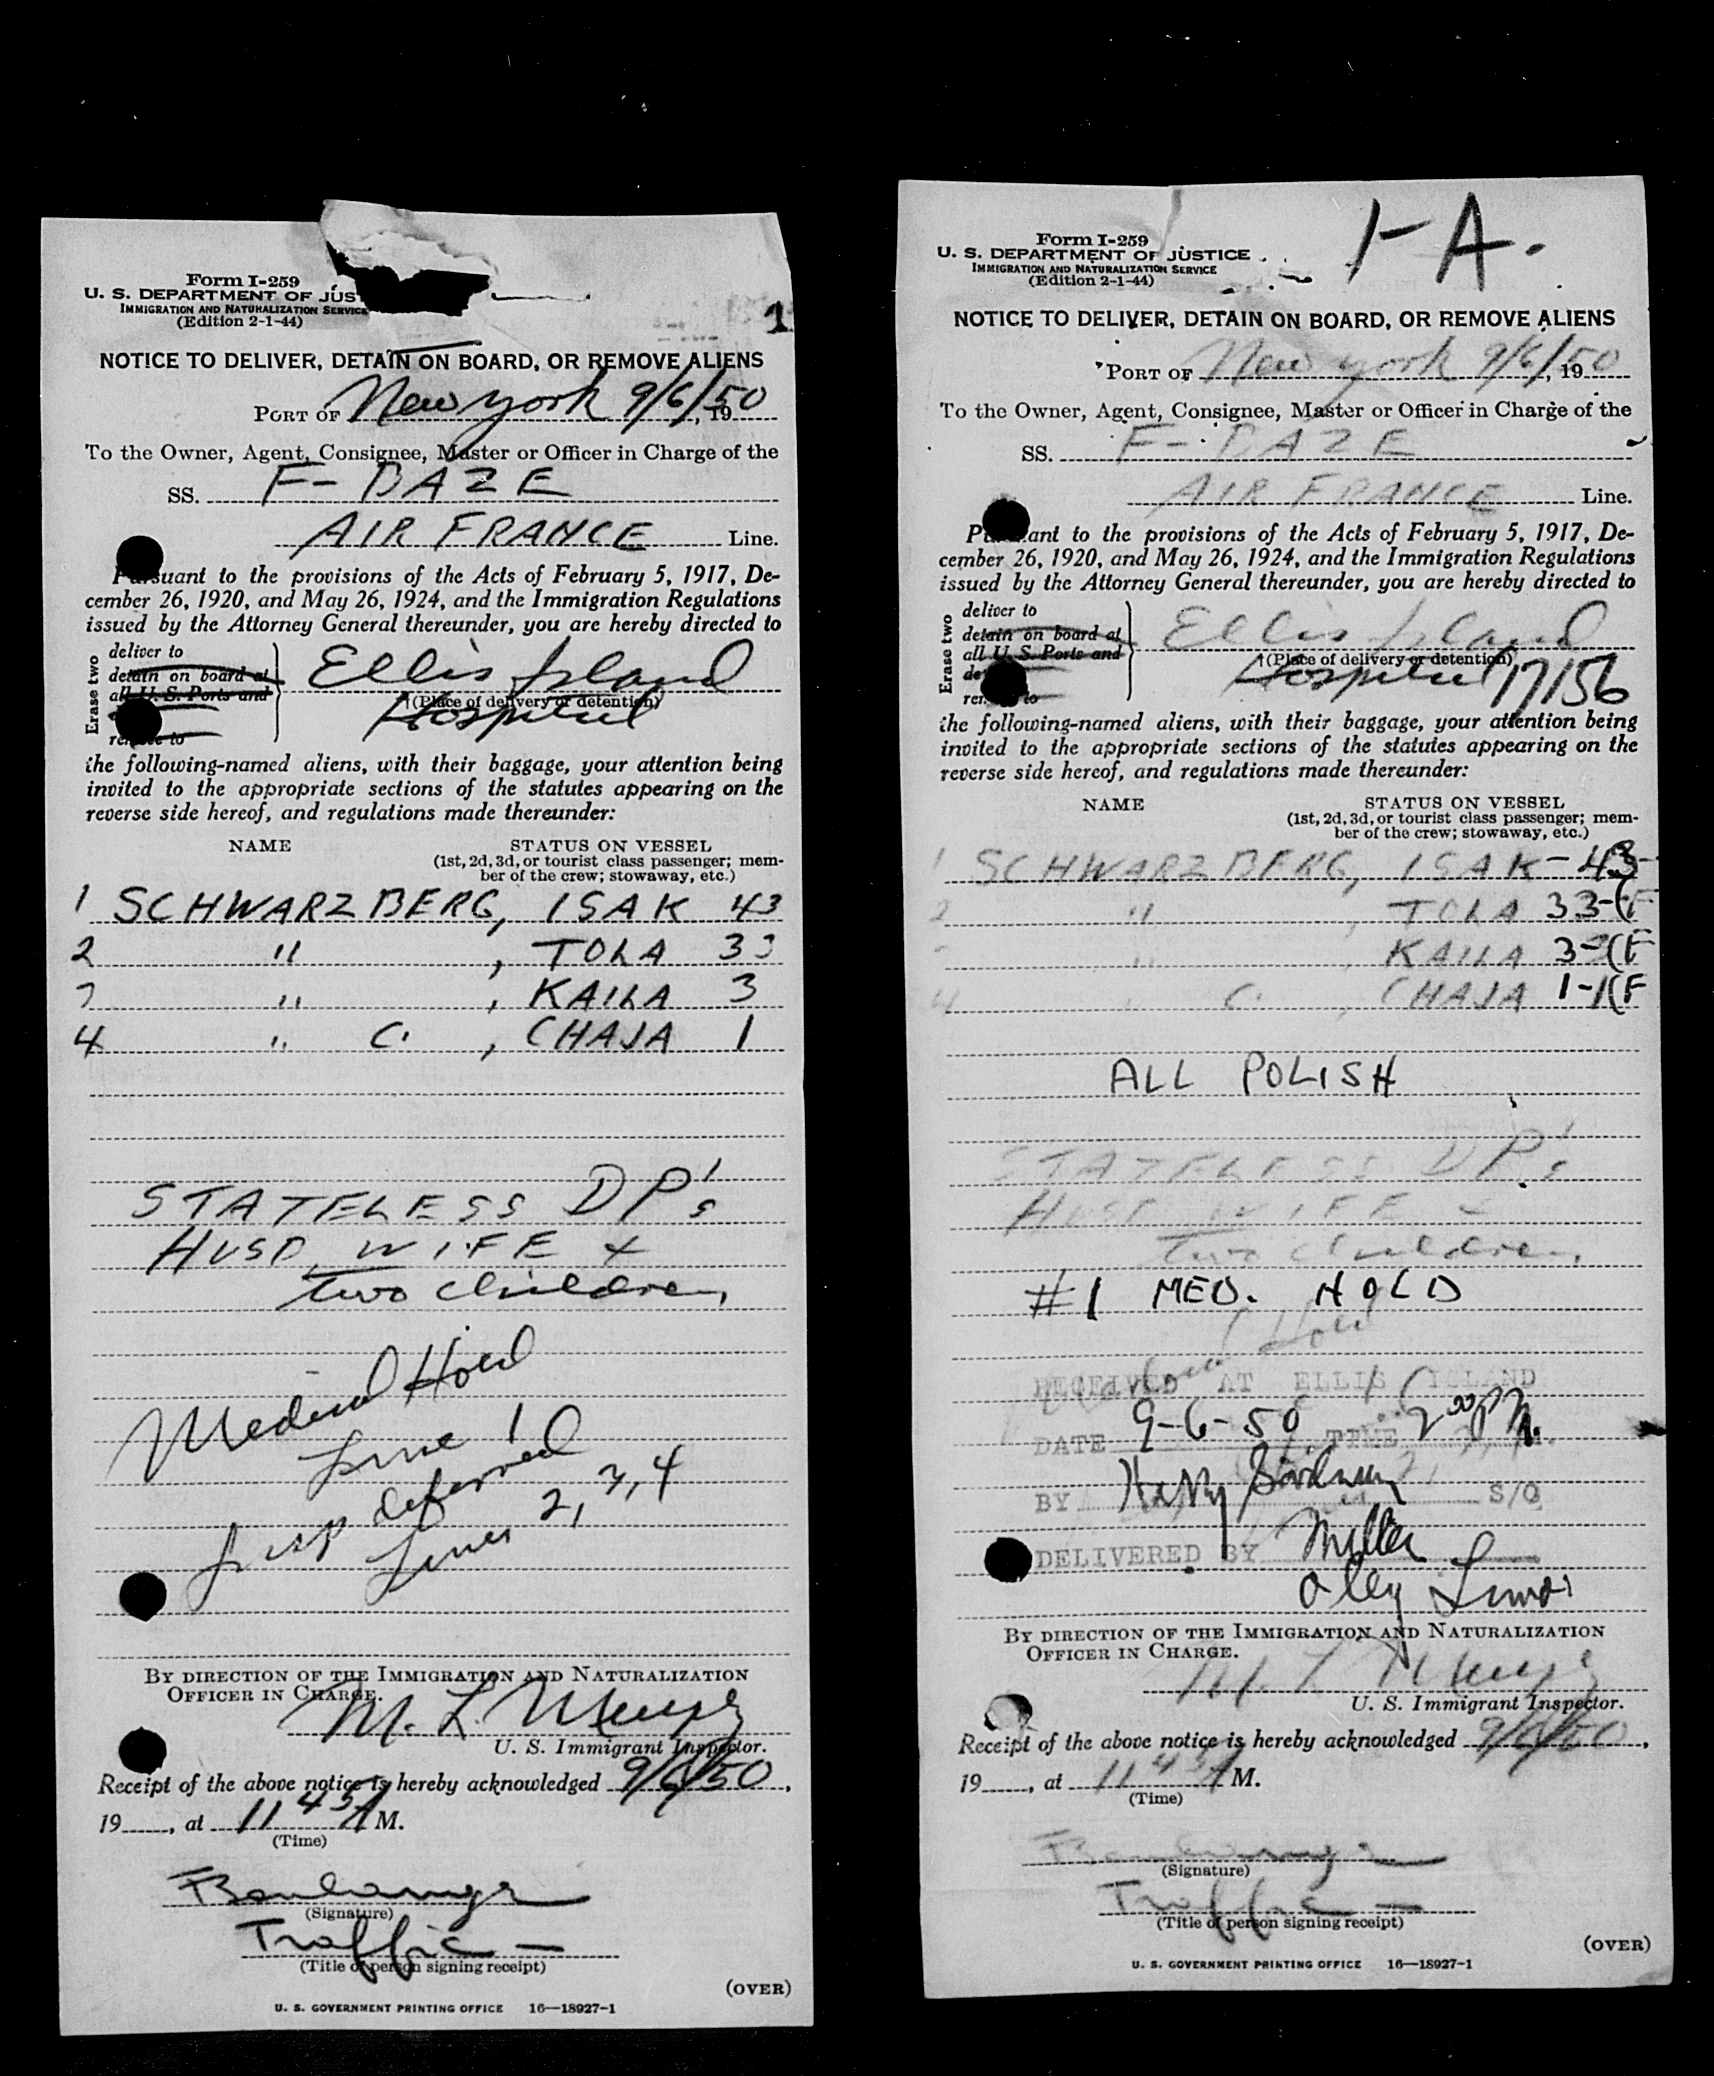 Form I-259
U. S. DEPARTMENT OF JUS
IMMIGRATION AND NATURALIZATION SERVICE
(Edition 2-1-44)
1
NOTICE TO DELIVER, DETAIN ON BOARD, OR REMOVE ALIENS
PORT OF New York 9/6/50, 19
To the Owner, Agent, Consignee, Master or Officer in Charge of the
SS. F-BAZE
AIR FRANCE Line.
Pursuant to the provisions of the Acts of February 5, 1917, De-
cember 26, 1920, and May 26, 1924, and the Immigration Regulations
issued by the Attorney General thereunder, you are hereby directed to
Erase two
deliver to
detain on board at
all U. S. Ports and
remove to
Ellis Island
(Place of delivery or detention)
Hospital
the following-named aliens, with their baggage, your attention being
invited to the appropriate sections of the statutes appearing on the
reverse side hereof, and regulations made thereunder:
NAME STATUS ON VESSEL
(1st, 2d, 3d, or tourist class passenger; mem-
ber of the crew; stowaway, etc.)
1 SCHWARZBERG, ISAK 43
2 " , TOLA 33
3 " , KAILA 3
4 " C. , CHAJA 1
STATELESS DP's
HUSB, WIFE +
two children
Medical Hold
Line 1
Insp deferred
Lines 2, 3, 4
BY DIRECTION OF THE IMMIGRATION AND NATURALIZATION
OFFICER IN CHARGE.
M. L.
U. S. Immigrant Inspector.
Receipt of the above notice is hereby acknowledged 9/6/50,
19, at 11 45 A M.
(Time)
(Signature)
Traffic —
(Title of person signing receipt)
(OVER)
U. S. GOVERNMENT PRINTING OFFICE 16—18927-1
1-A.
Form I-259
U. S. DEPARTMENT OF JUSTICE
IMMIGRATION AND NATURALIZATION SERVICE
(Edition 2-1-44)
NOTICE TO DELIVER, DETAIN ON BOARD, OR REMOVE ALIENS
PORT OF New York 9/6/50, 19
To the Owner, Agent, Consignee, Master or Officer in Charge of the
SS. F-BAZE
AIR FRANCE Line.
Pursuant to the provisions of the Acts of February 5, 1917, De-
cember 26, 1920, and May 26, 1924, and the Immigration Regulations
issued by the Attorney General thereunder, you are hereby directed to
Erase two
deliver to
detain on board at
all U. S. Ports and
de
remove to
Ellis Island
(Place of delivery or detention)
Hospital 17156
the following-named aliens, with their baggage, your attention being
invited to the appropriate sections of the statutes appearing on the
reverse side hereof, and regulations made thereunder:
NAME STATUS ON VESSEL
(1st, 2d, 3d, or tourist class passenger; mem-
ber of the crew; stowaway, etc.)
1 SCHWARZBERG, ISAK - 43-
2 " , TOLA 33-(F
" , KAILA 3-(F
4 " C. , CHAJA 1-(F
ALL POLISH
STATELESS DP's
HUSB, WIFE +
two children
#1 MED. HOLD
RECEIVED AT ELLIS ISLAND
DATE 9-6-50 TIME 2 00 P M.
BY S/O
DELIVERED BY Miller
BY DIRECTION OF THE IMMIGRATION AND NATURALIZATION
OFFICER IN CHARGE.
M. L.
U. S. Immigrant Inspector.
Receipt of the above notice is hereby acknowledged 9/6/50,
19, at 11 45 A M.
(Time)
(Signature)
Traffic —
(Title of person signing receipt)
(OVER)
U. S. GOVERNMENT PRINTING OFFICE 16—18927-1